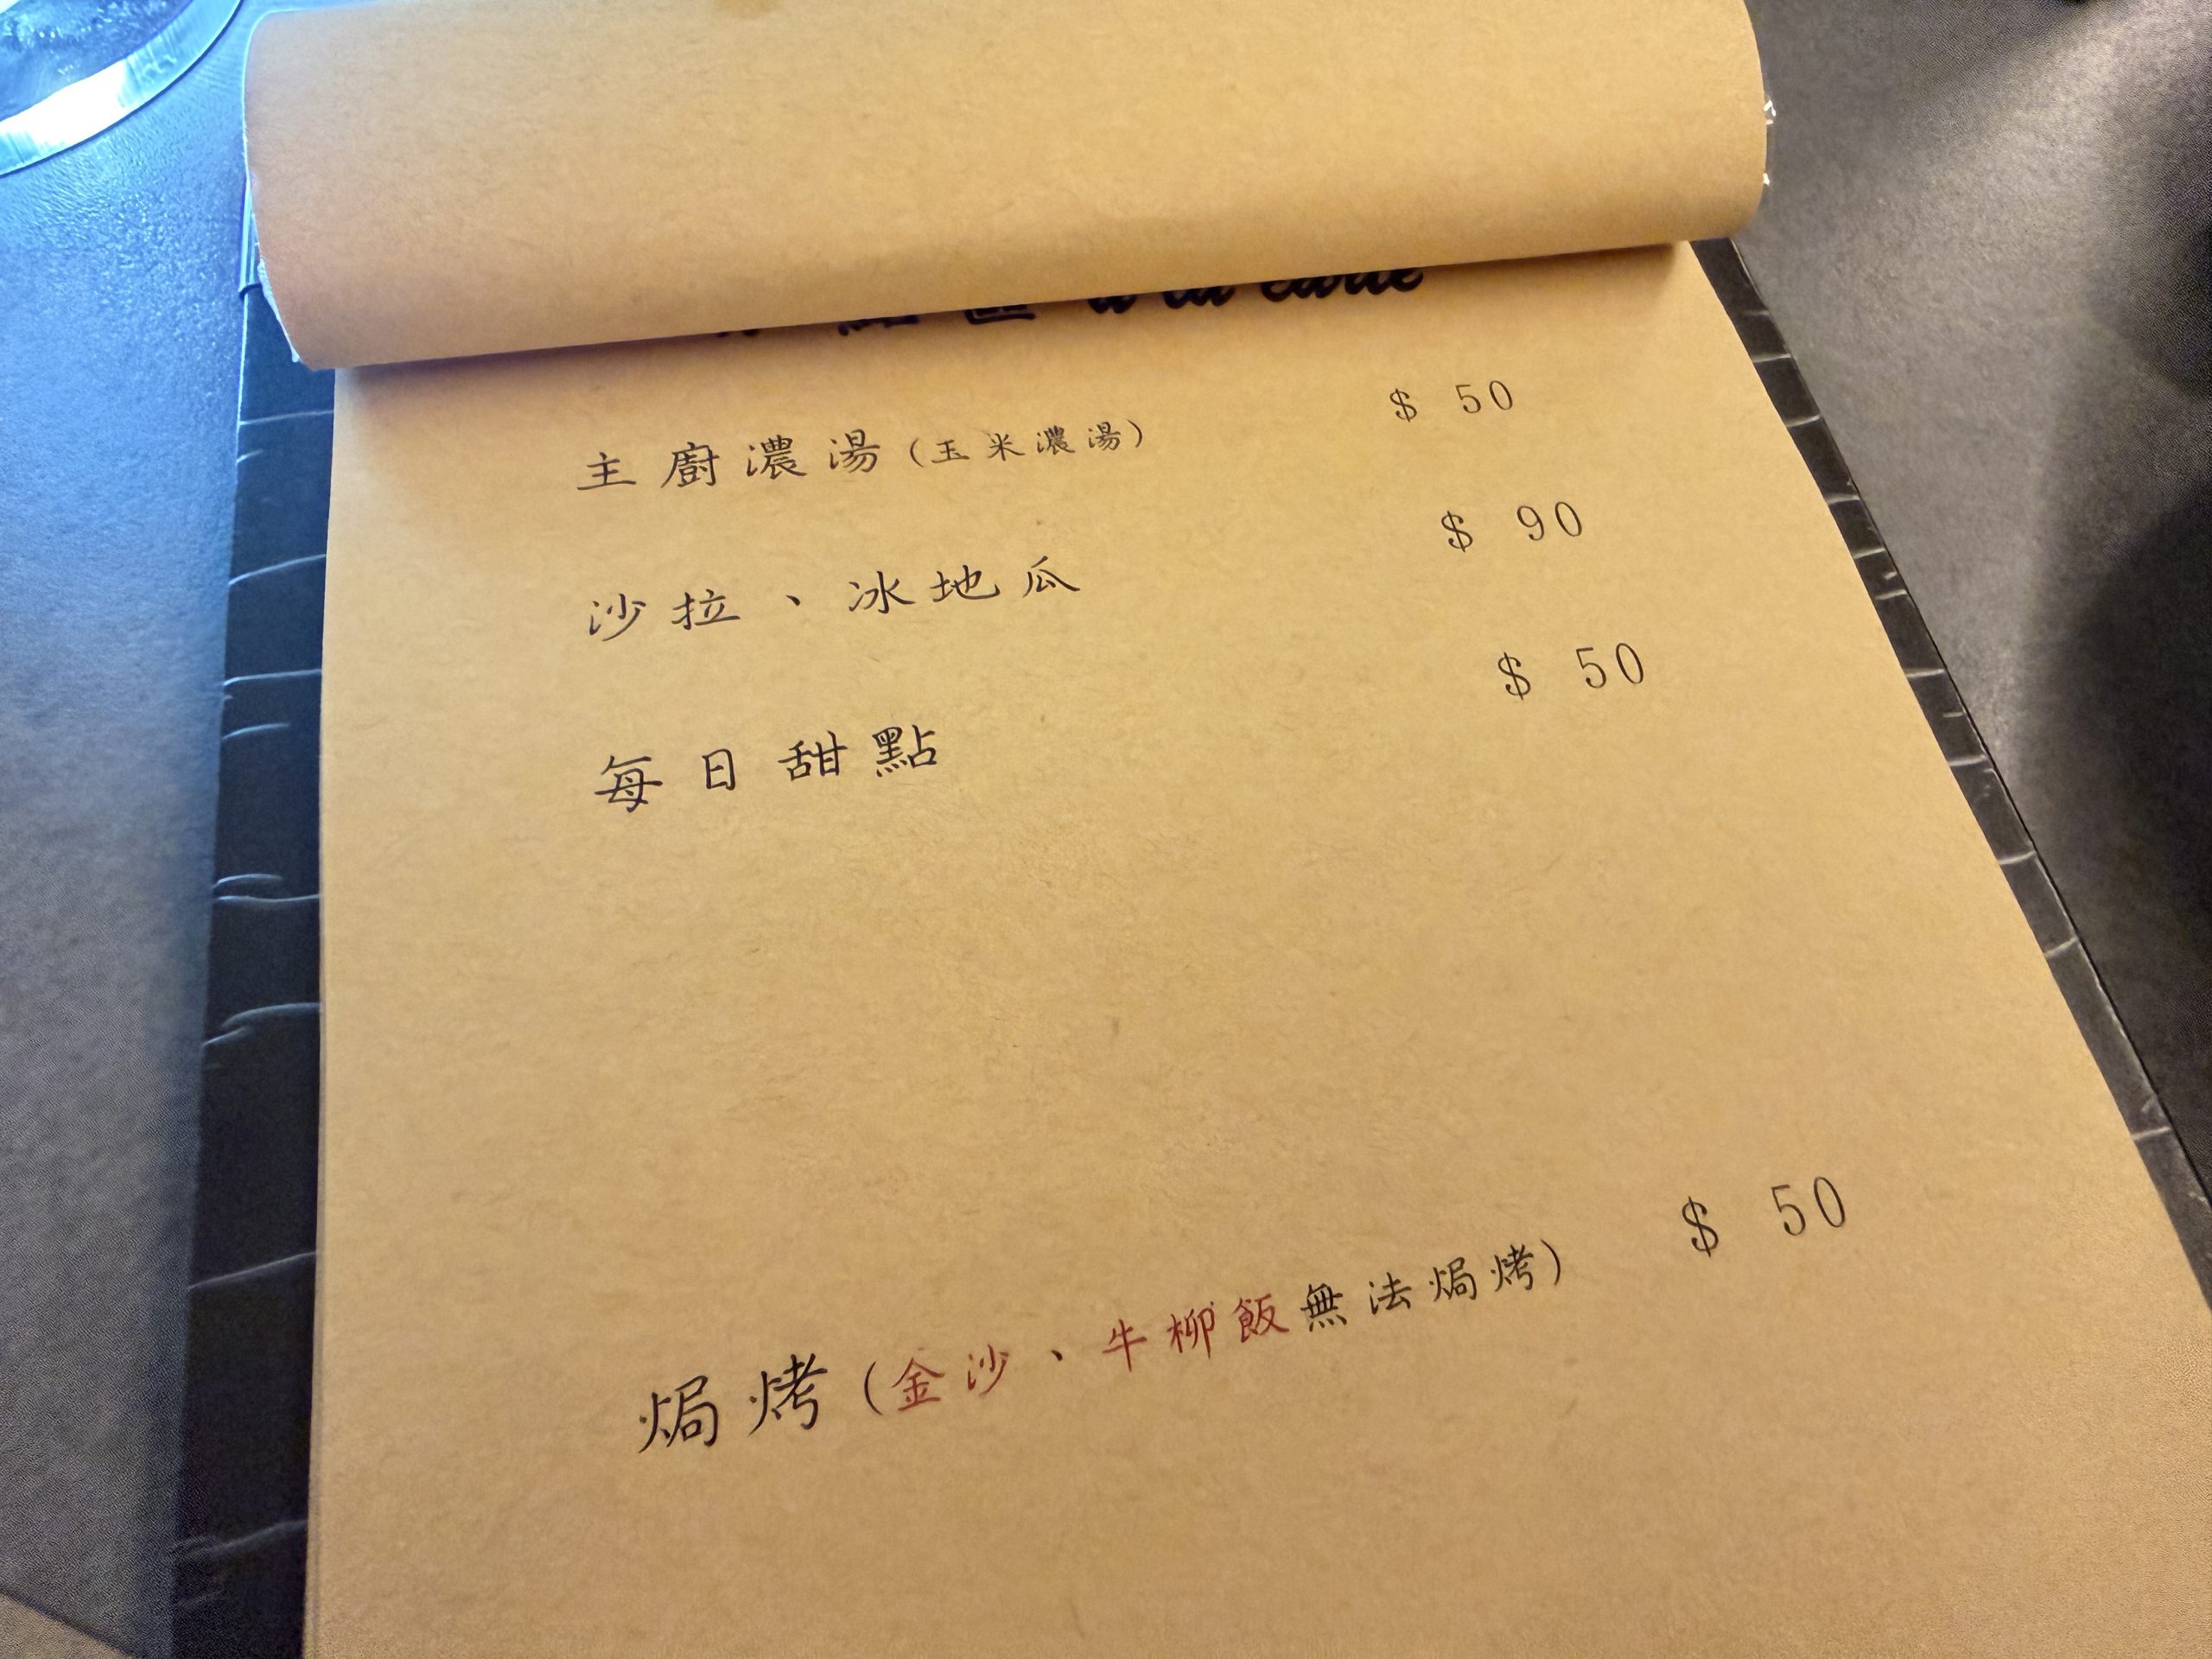 單點區 à la carte
主廚濃湯(玉米濃湯) $ 50
沙拉、冰地瓜 $ 90
每日甜點 $ 50
焗烤(金沙、牛柳飯無法焗烤) $ 50